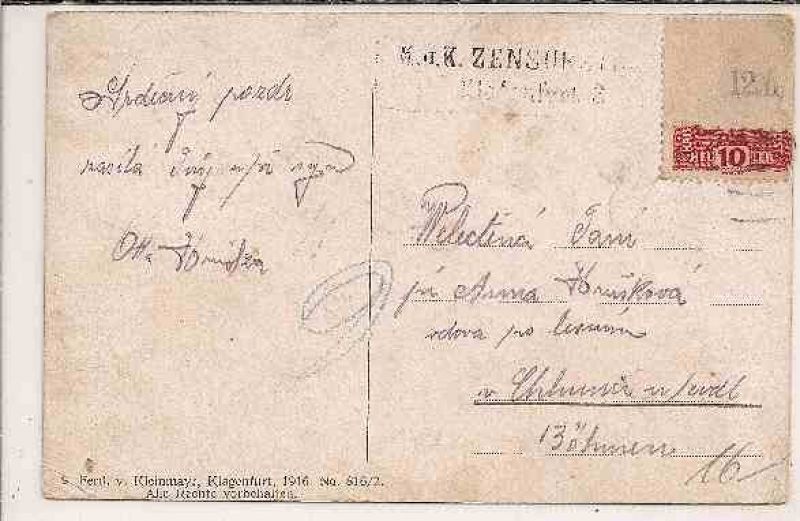 Srdečný pozdr
zasílá
Otta Hruška
K.u.K. ZENSUR
Klagenfurt 2
12.
10
Velectěná Paní
pí Anna Hrušková
vdova po
v Chlumci n/Cidl
Böhmen
16
Ferd. v. Kleinmayr, Klagenfurt, 1916 No. 616/2.
Alle Rechte vorbehalten.